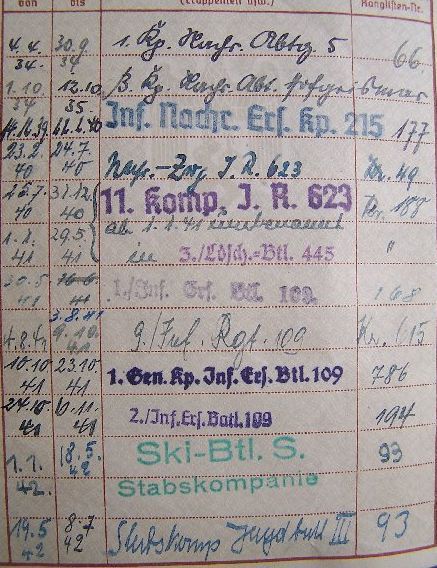 von bis (Truppenteil usw.) Ranglisten-Nr.
4.4. 34. 30.9. 34 1. Kp. Nachr. Abtlg. 5 66.
1.10. 34 12.10. 35. Kp. Nachr. Abt. Hofgeismar
Inf. Nachr. Ers. Kp. 215 177
23.2. 40 24.7. 40 Nachr.-Zug I.R. 623 Nr. 49
25.7. 40 31.12. 40 11. Komp. I. R. 623 Nr. 188
1.1. 41 29.5. 41 ab 1.1.41 umbenannt
in 3./Lösch.-Btl. 445 "
30.5 41 1./Inf. Ers. Btl. 109. 168
3.8.41
4.8.41 9.10. 41 9./Inf. Rgt. 109 Nr. 615
10.10. 41 23.10. 41 1. Gen. Kp. Inf. Ers. Btl. 109 786
24.10. 41 11. 41 2./Inf. Ers. Batl. 109 194
1.1. 42. 18.5. 42 Ski-Btl. S. 93
Stabskompanie
19.5 42 8.7 42 Stabskomp Jagdbatl III 93